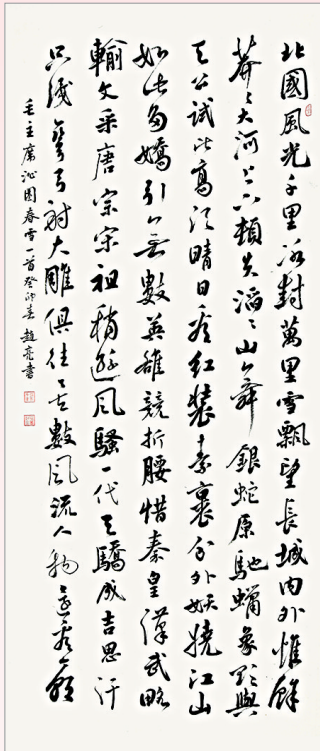 北國風光千里冰封萬里雪飄望長城内外惟餘
莽々大河上下頓失滔々山舞銀蛇原馳蠟象欲與
天公試比高須晴日看紅裝素裹分外妖嬈江山
如此多嬌引無數英雄競折腰惜秦皇漢武略
輸文采唐宗宋祖稍遜风騷一代天驕成吉思汗
只識彎弓射大雕俱往矣數风流人物還看今朝
毛主席沁園春雪一首癸卯春趙亮書